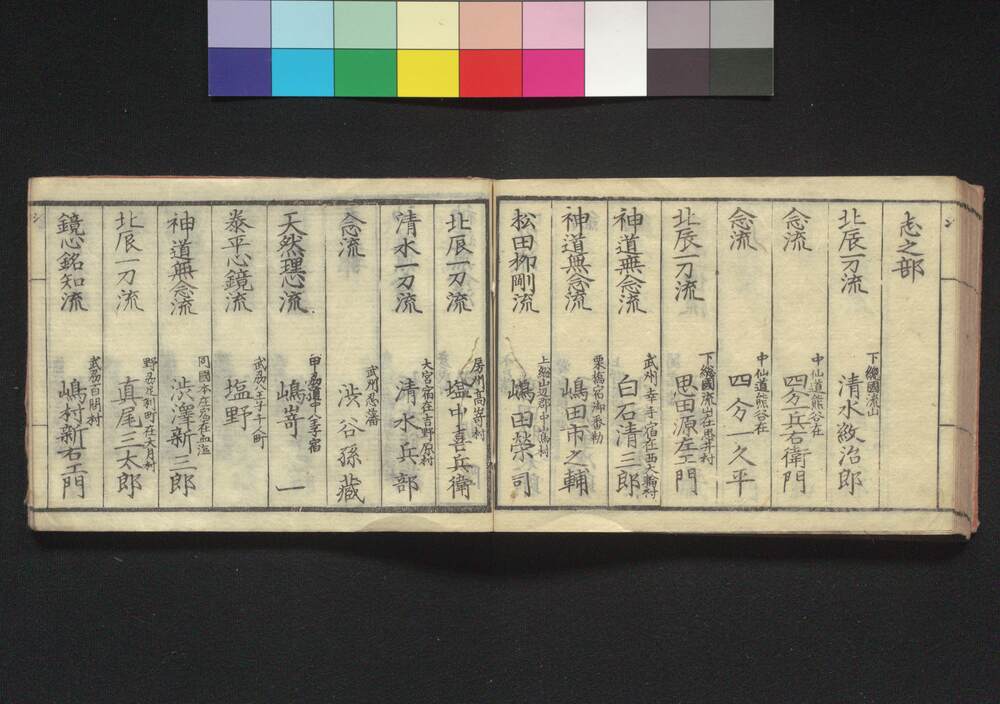 シ
志之部
北辰一刀流
下總國流山
清水紋治郎
念流
中仙道熊谷在
四分一兵右衛門
念流
中仙道熊谷在
四分一久平
北辰一刀流
下總國流山在思井村
思田源左エ門
神道無念流
武州幸手宿在西大輪村
白石清三郎
神道無念流
栗橋宿御番勤
嶋田市之輔
松田柳剛流
上総山辺郡中嶌村
嶋田榮司
北辰一刀流
房州高嵜村
塩中喜兵衛
清水一刀流
大宮宿在吉野原村
清水兵部
念流
武州忍藩
渋谷孫藏
天然理心流
甲刕道中八王子宿
嶋嵜一
泰平心鏡流
武刕八王子千人町
塩野
神道無念流
同國本庄宿在血洗
渋澤新三郎
北辰一刀流
野刕足利町在大月村
真尾三太郎
鏡心銘知流
武刕百間村
嶋村新右エ門
シ